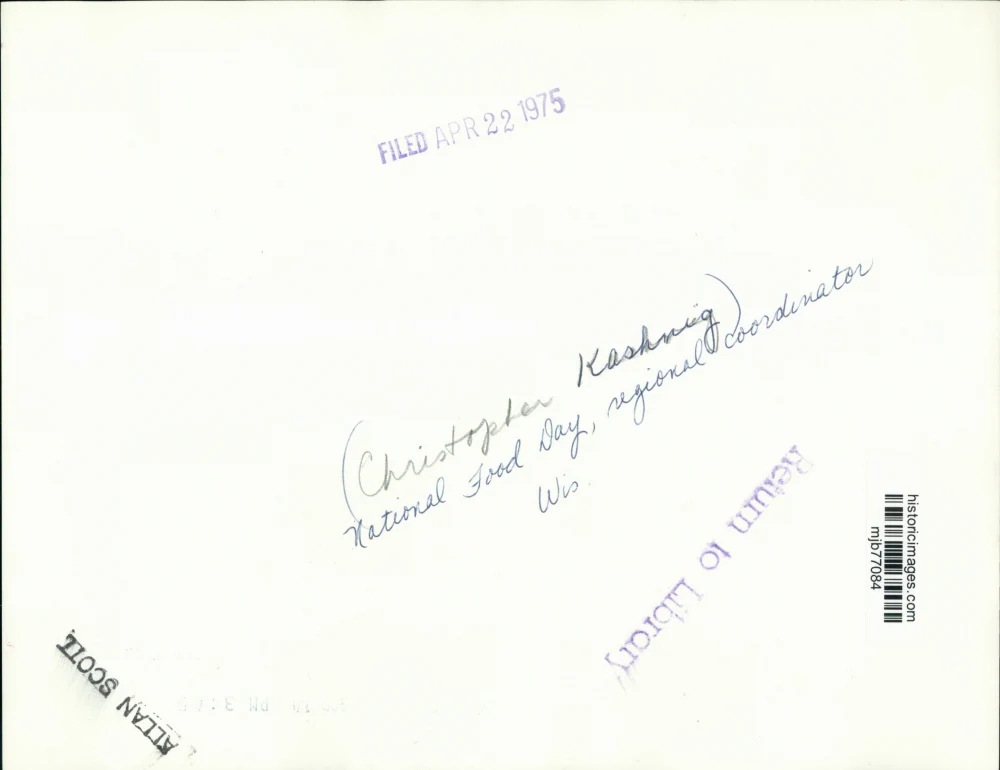 FILED APR 22 1975
(Christopher Kashnig)
National Food Day, regional coordinator
Wis.
Return to Library
historicimages.com
mjb77084
ALLAN SCOTT